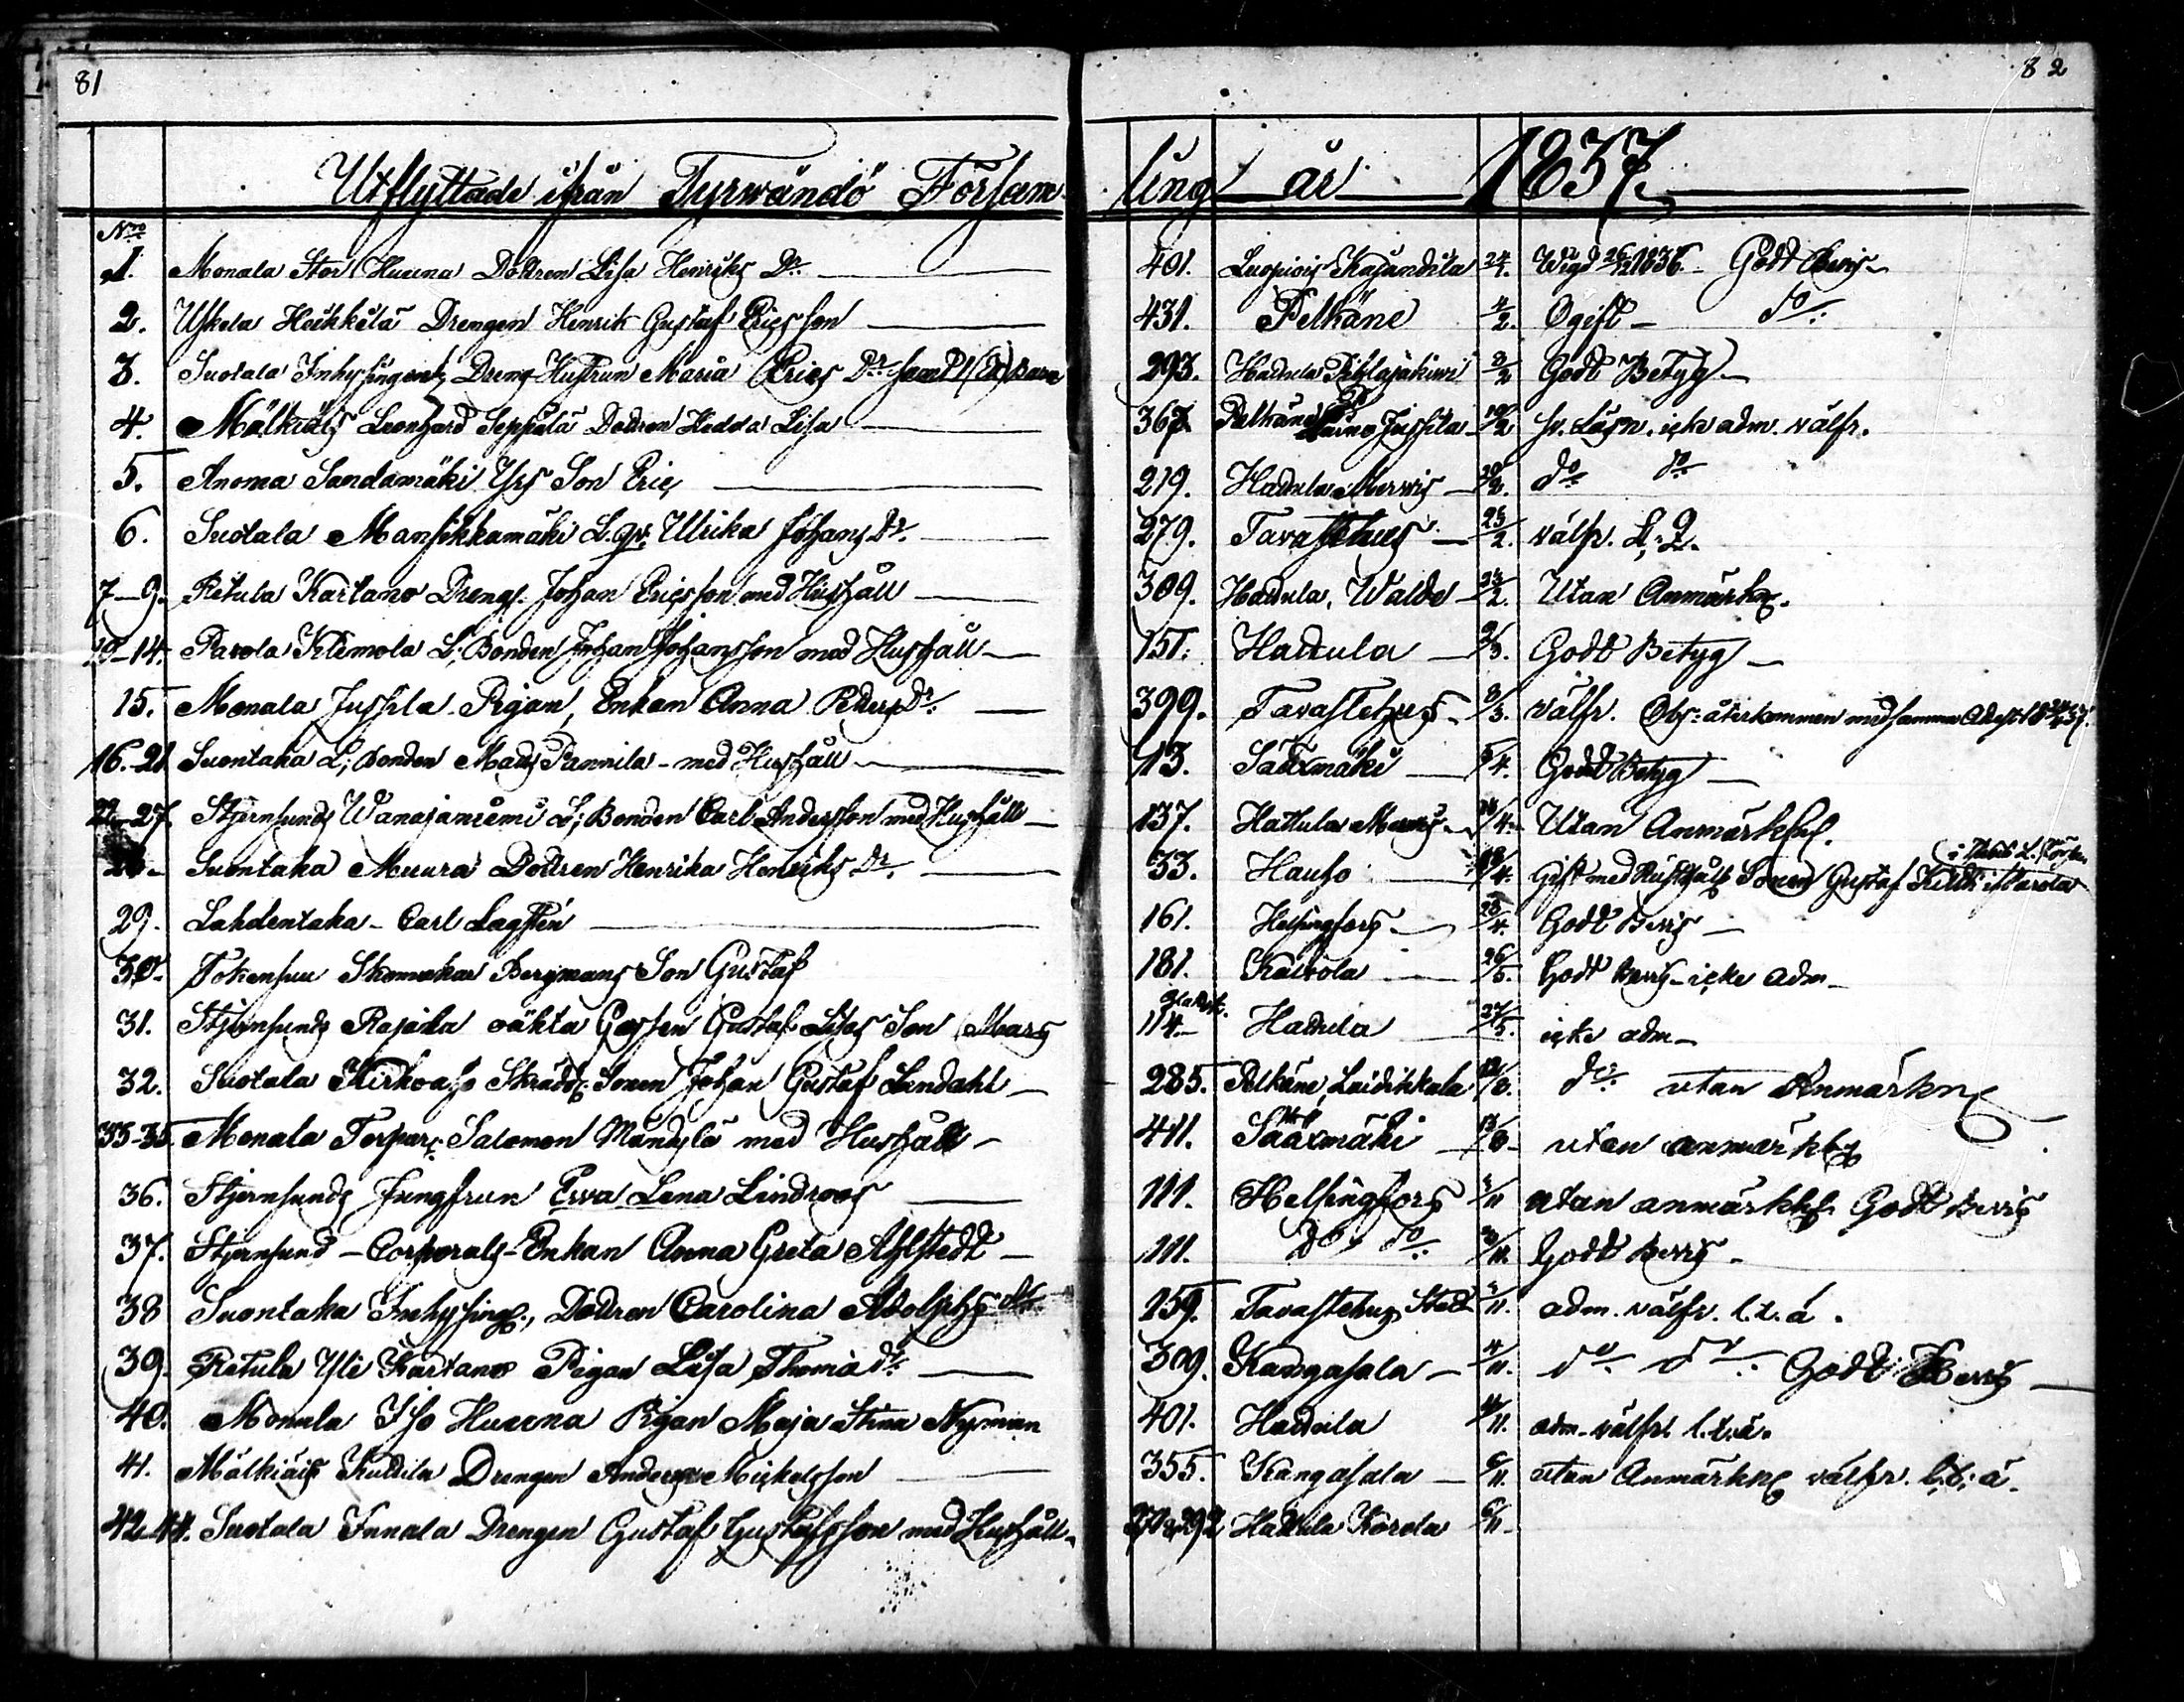 81
82
Utflyttade ifrån Tyrwändö Församling år 1837.
Nro
1. Monala Stor Huuna Dottren Lisa Henriks Dr. 401. Luopiois 24/1. Wigd 26/12 1836. Godt Bewis
2. Uskela Heikkilä Drengen Henrik Gustaf Ericsson 431. Pelkäne 4/2. Ogift do
3. Suotala Inhysinge Dreng Hustrun Maria Erics Dr samt 1 barn 293. Hattula 3/2 Godt Betyg
4. Mälkiäis Leonhard Seppälä Dottren Hedda Lisa 367. Pelkäne Jussila 19/2 sv. Läsn. icke adm. välfr.
5. Anoma Sandamäki Yrs Son Eric 219. Hattula Merwis do do
6. Suotala Mansikkamäki Ulrika Johans Dr. 279. Tavastehus 23/2. välfr.
7–9. Retula Kartano Dreng. Johan Ericsson med Hushåll 309. Hattula, Walde 23/2. Utan Anmärkn.
10–14. Parola Klemola L. Bonden Johan Johansson med Hushåll 151. Hattula 2/3. Godt Betyg
15. Monala Jussila Pigan, Enkan Anna Peders Dr. 399. Tavastehus 3/3. välfr. Obs: återkommen med samma Attest
16.–21. Suontaka L. Bonden Mats Pannila med Hushåll 13. Sääxmäki 5/4. Godt Betyg
22–27. Stjernsunds Wanajaniemi L. Bonden Carl Andersson med Hushåll 137. Hattula Merwis Utan Anmärkn.
28 Suontaka Muura Dottren Henrika Henriks Dr. 33. Hauho Gift med Rusthålls Sonen Gustaf
29. Lahdentaka Carl Lagsten 161. Helsingfors 28/4. Godt Bewis
30. Tokensuu Skomakar Bergmans Son Gustaf 181. Kalvola 26/5. Godt Bewis icke adm
31. Stjernsunds Rajala oäkta Gossen Gustaf Lisas Son 114. Hattula 27/5. icke adm
32. Suotala Kirkoaho Skrädd. Sonen Johan Gustaf Lendahl 285. Pelkäne, Laidikkala do utan Anmärkn
33–35 Monala Torpar. Salomon Mandyla med Hushåll 411. Sääxmäki 13/8 utan anmärkn
36. Stjernsunds Jungfrun Ewa Lena Lindroos 111. Helsingfors utan anmärkn. Godt Bewis
37. Stjernsund Corporals Enkan Anna Greta Ahlstedt 111. Do do Godt Bewis
38 Suontaka Inhysing., Dottren Carolina Adolphs dr 159. Tavastehus Stad adm. välfr. l. t. ä.
39. Retula Yli Kartano Pigan Lisa Thomä dr. 309. Kangasala 4/11. do do Godt Bewis
40. Monala Iso Huuna Pigan Maja Stina Nyman 401. Hattula 4/11. adm. välfr. l. t. ä.
41. Mälkiäis Kuttila Drengen Anders Mickelsson 355. Kangasala 6/11. utan Anmärkn välfr. l. t. ä.
42–44. Suotala Innala Drengen Gustaf Gustafsson med Hushåll Hattula Karola 6/11